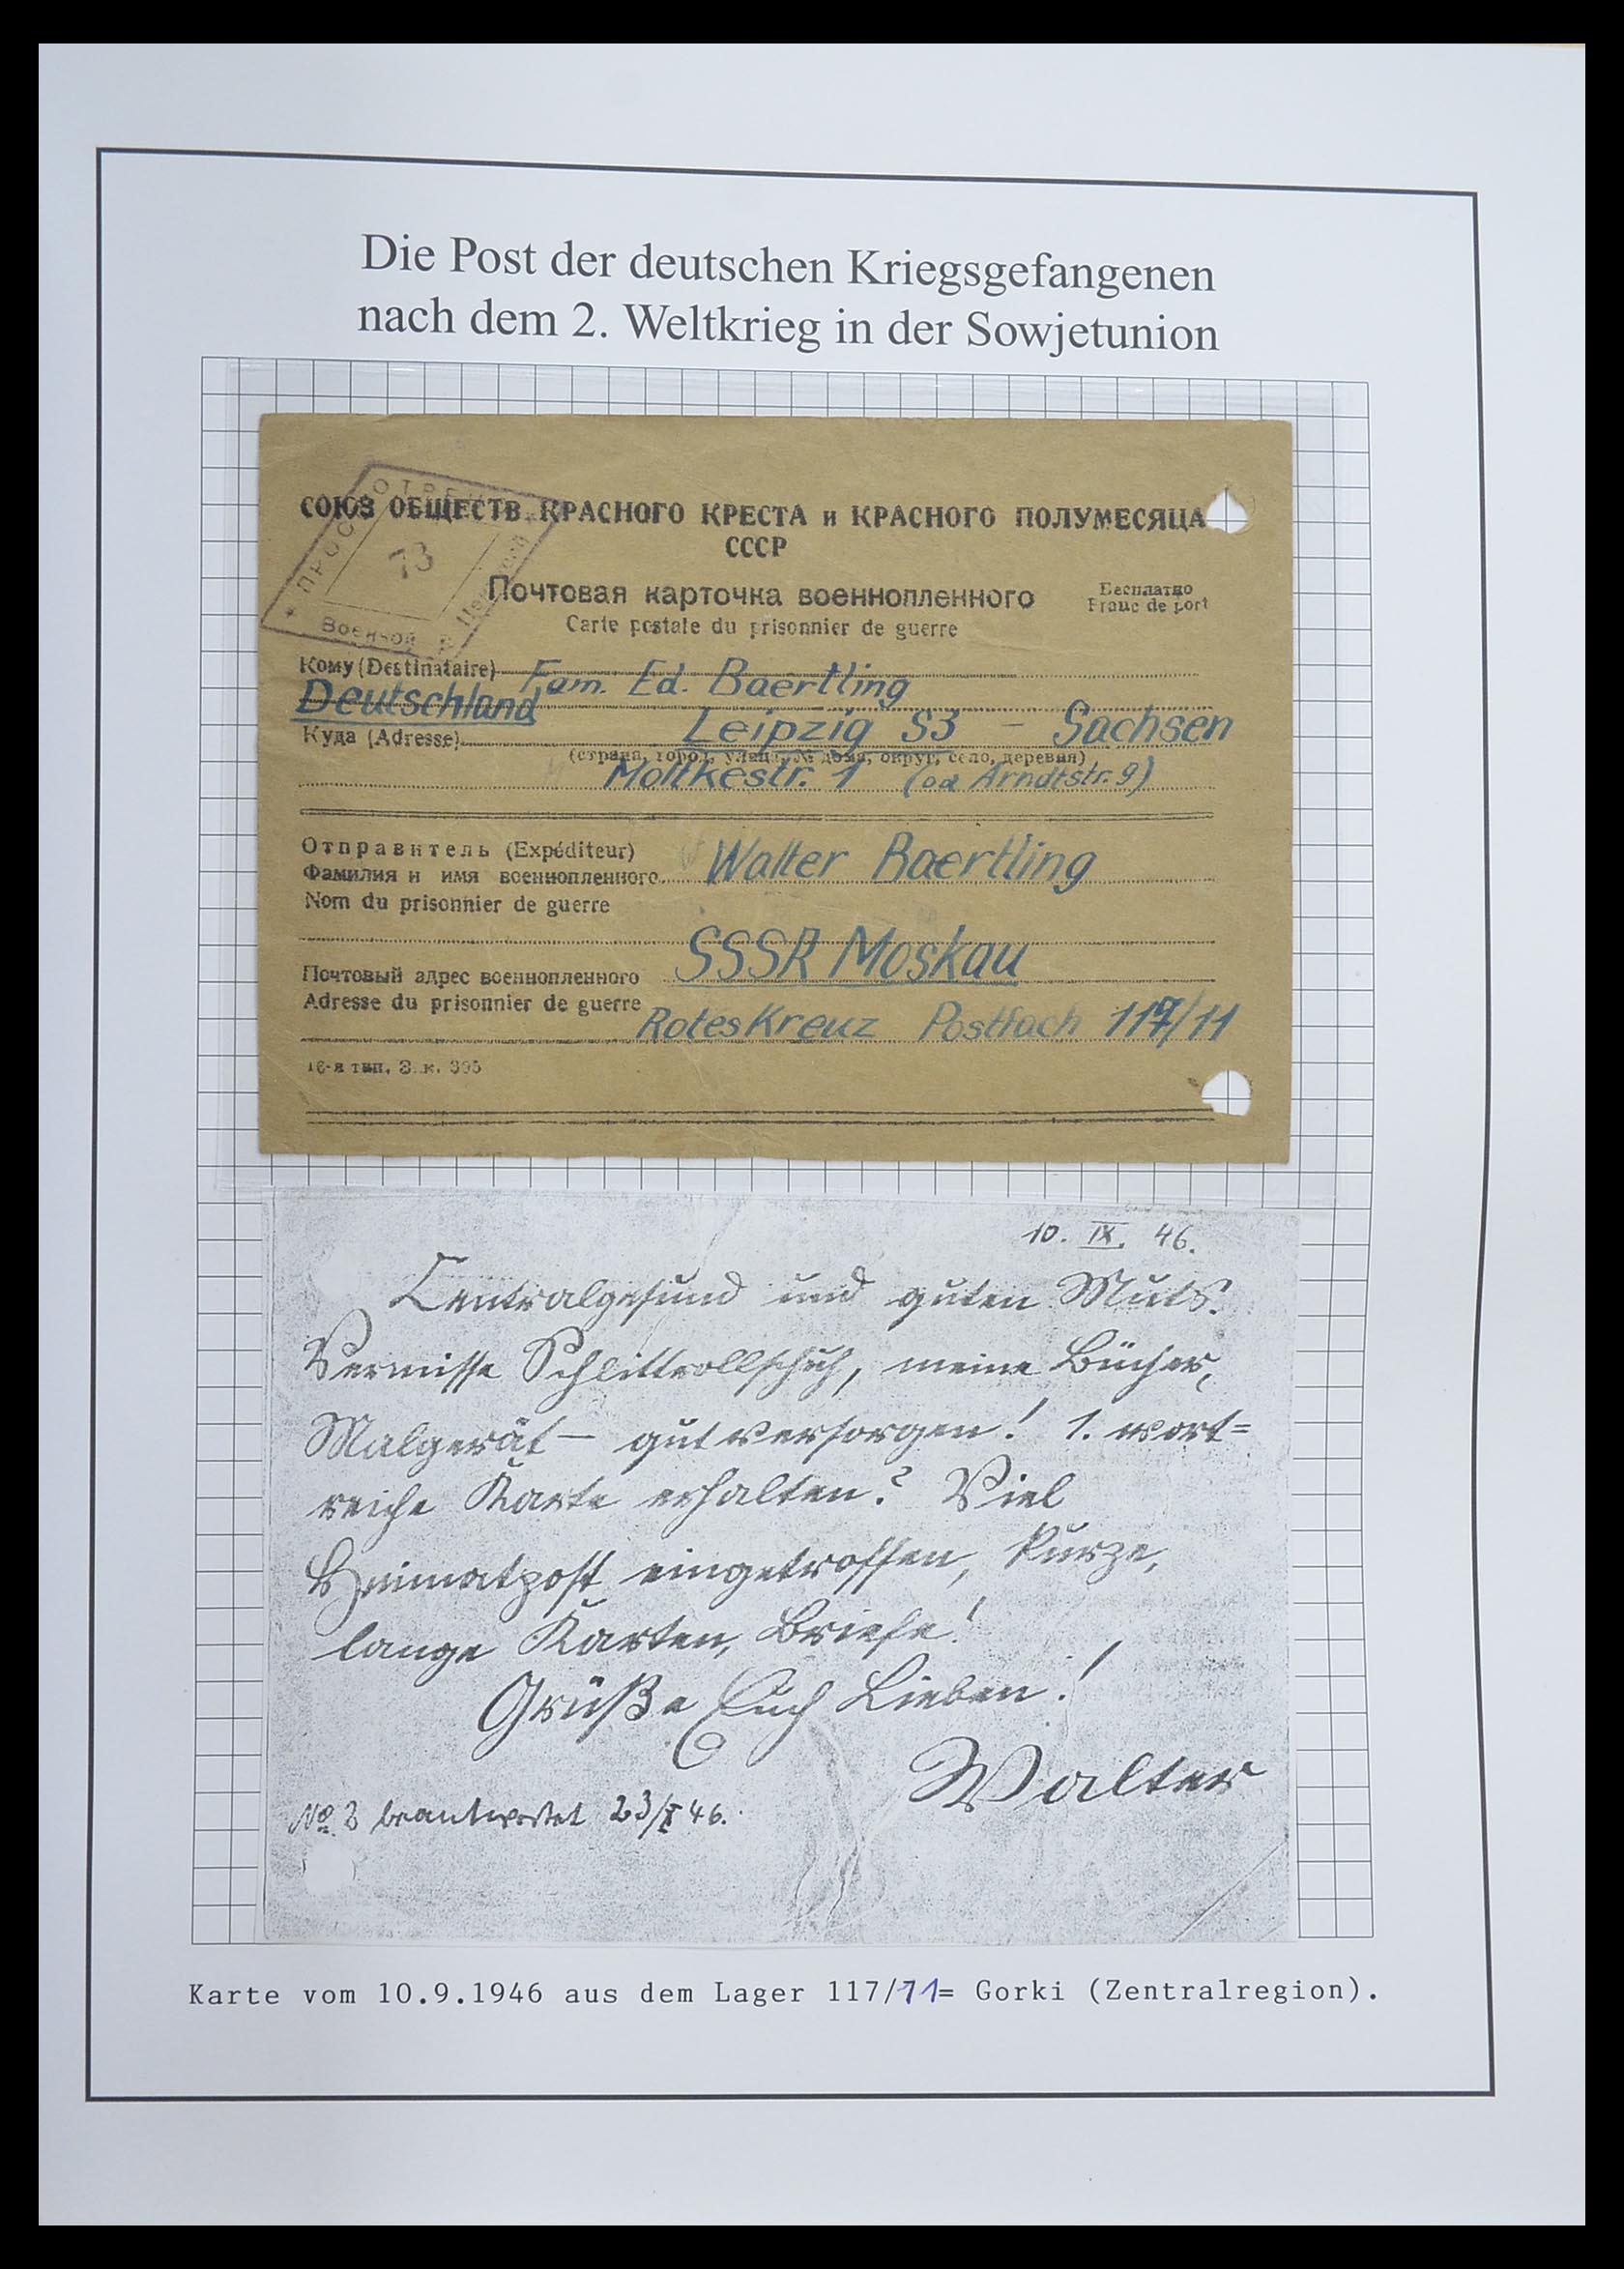 Die Post der deutschen Kriegsgefangenen
nach dem 2. Weltkrieg in der Sowjetunion
ПРОСМОТРЕНО
73
Военной
СОЮЗ ОБЩЕСТВ КРАСНОГО КРЕСТА и КРАСНОГО ПОЛУМЕСЯЦА
СССР
Почтовая карточка военнопленного
Бесплатно
Carte postale du prisonnier de guerre
Franc de port
Кому (Destinataire) Fam. Ed. Baertling
Deutschland
Куда (Adresse) Leipzig S3 – Sachsen
(страна, город, улица, № дома, округ, село, деревня)
Moltkestr. 1 (od Arndtstr. 9)
Отправитель (Expéditeur)
Фамилия и имя военнопленного Walter Baertling
Nom du prisonnier de guerre
SSSR Moskau
Почтовый адрес военнопленного
Adresse du prisonnier de guerre
Rotes Kreuz Postfach 117/11
16-я тип. Зак. 395
10. IX. 46.
Centralgesund und guten Muts.
Vermisse Schlittrollschuh, meine Bücher,
Malgerät – gut versorgen! 1. wort=
reiche Karte erhalten? Viel
Heimatpost eingetroffen, kurze,
lange Karten, Briefe!
Grüße Euch Lieben!
Walter
No 2 beantwortet 23/X 46.
Karte vom 10.9.1946 aus dem Lager 117/11= Gorki (Zentralregion).